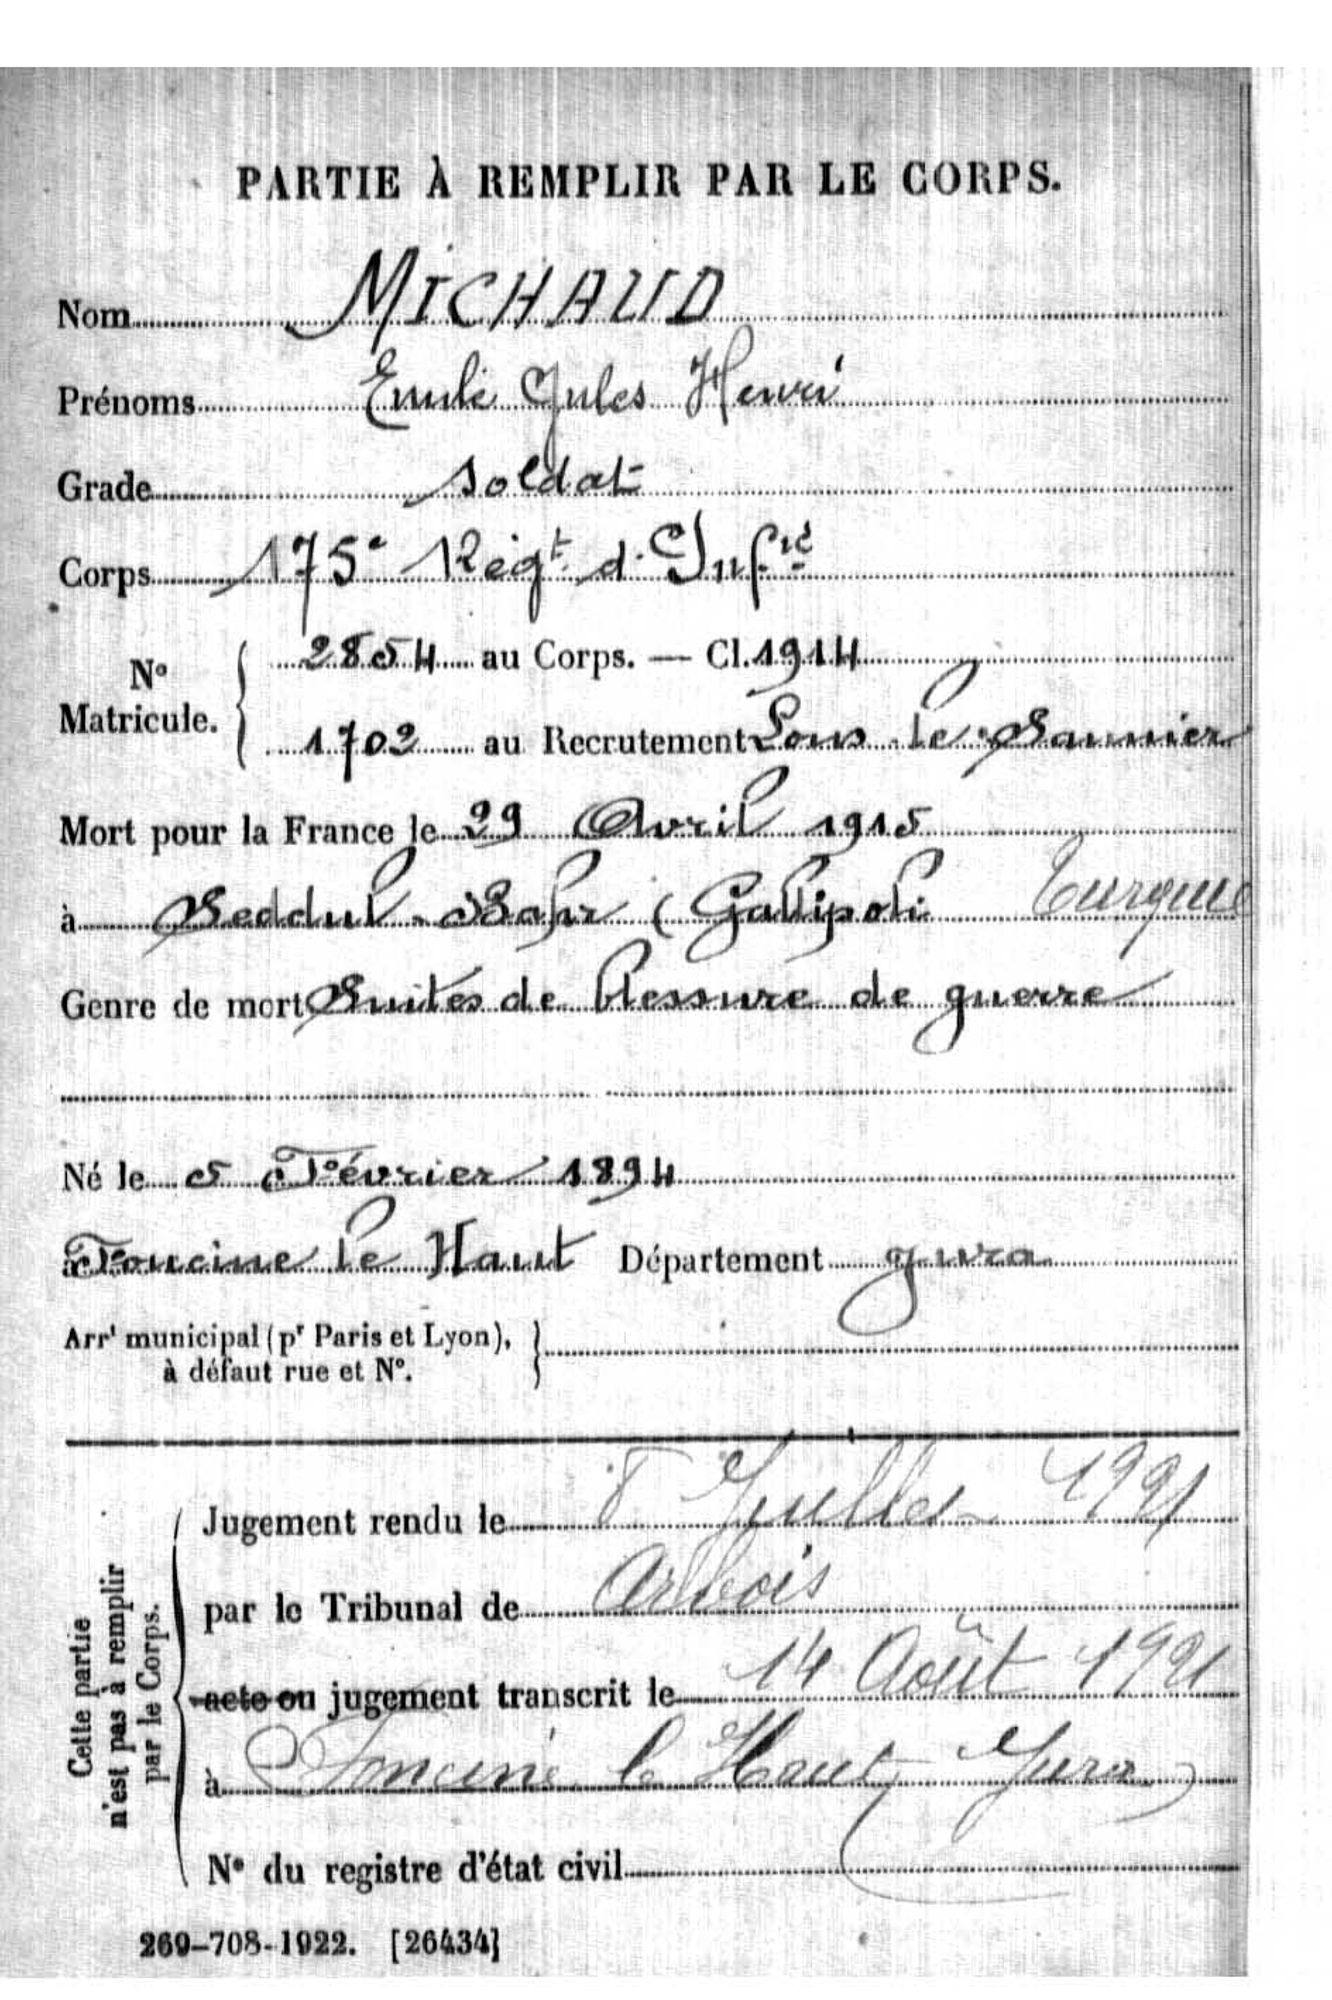 PARTIE À REMPLIR PAR LE CORPS.
Nom MICHAUD
Prénoms Emile Jules Henri
Grade Soldat
Corps 175e Régt d'Infie
No Matricule. { 2854 au Corps. — Cl. 1914
1702 au Recrutement Lons-le-Saunier
Mort pour la France le 29 Avril 1915
à Seddul-Bahr (Gallipoli Turquie
Genre de mort Suites de blessure de guerre
Né le 5 Février 1894
à Foncine le Haut Département Jura
Arrt municipal (pr Paris et Lyon), }
à défaut rue et No.
Cette partie n'est pas à remplir par le Corps.
Jugement rendu le 8 Juillet 1921
par le Tribunal de Arbois
acte ou jugement transcrit le 14 Août 1921
à Foncine le Haut, Jura
No du registre d'état civil
269-708-1922. [26434]